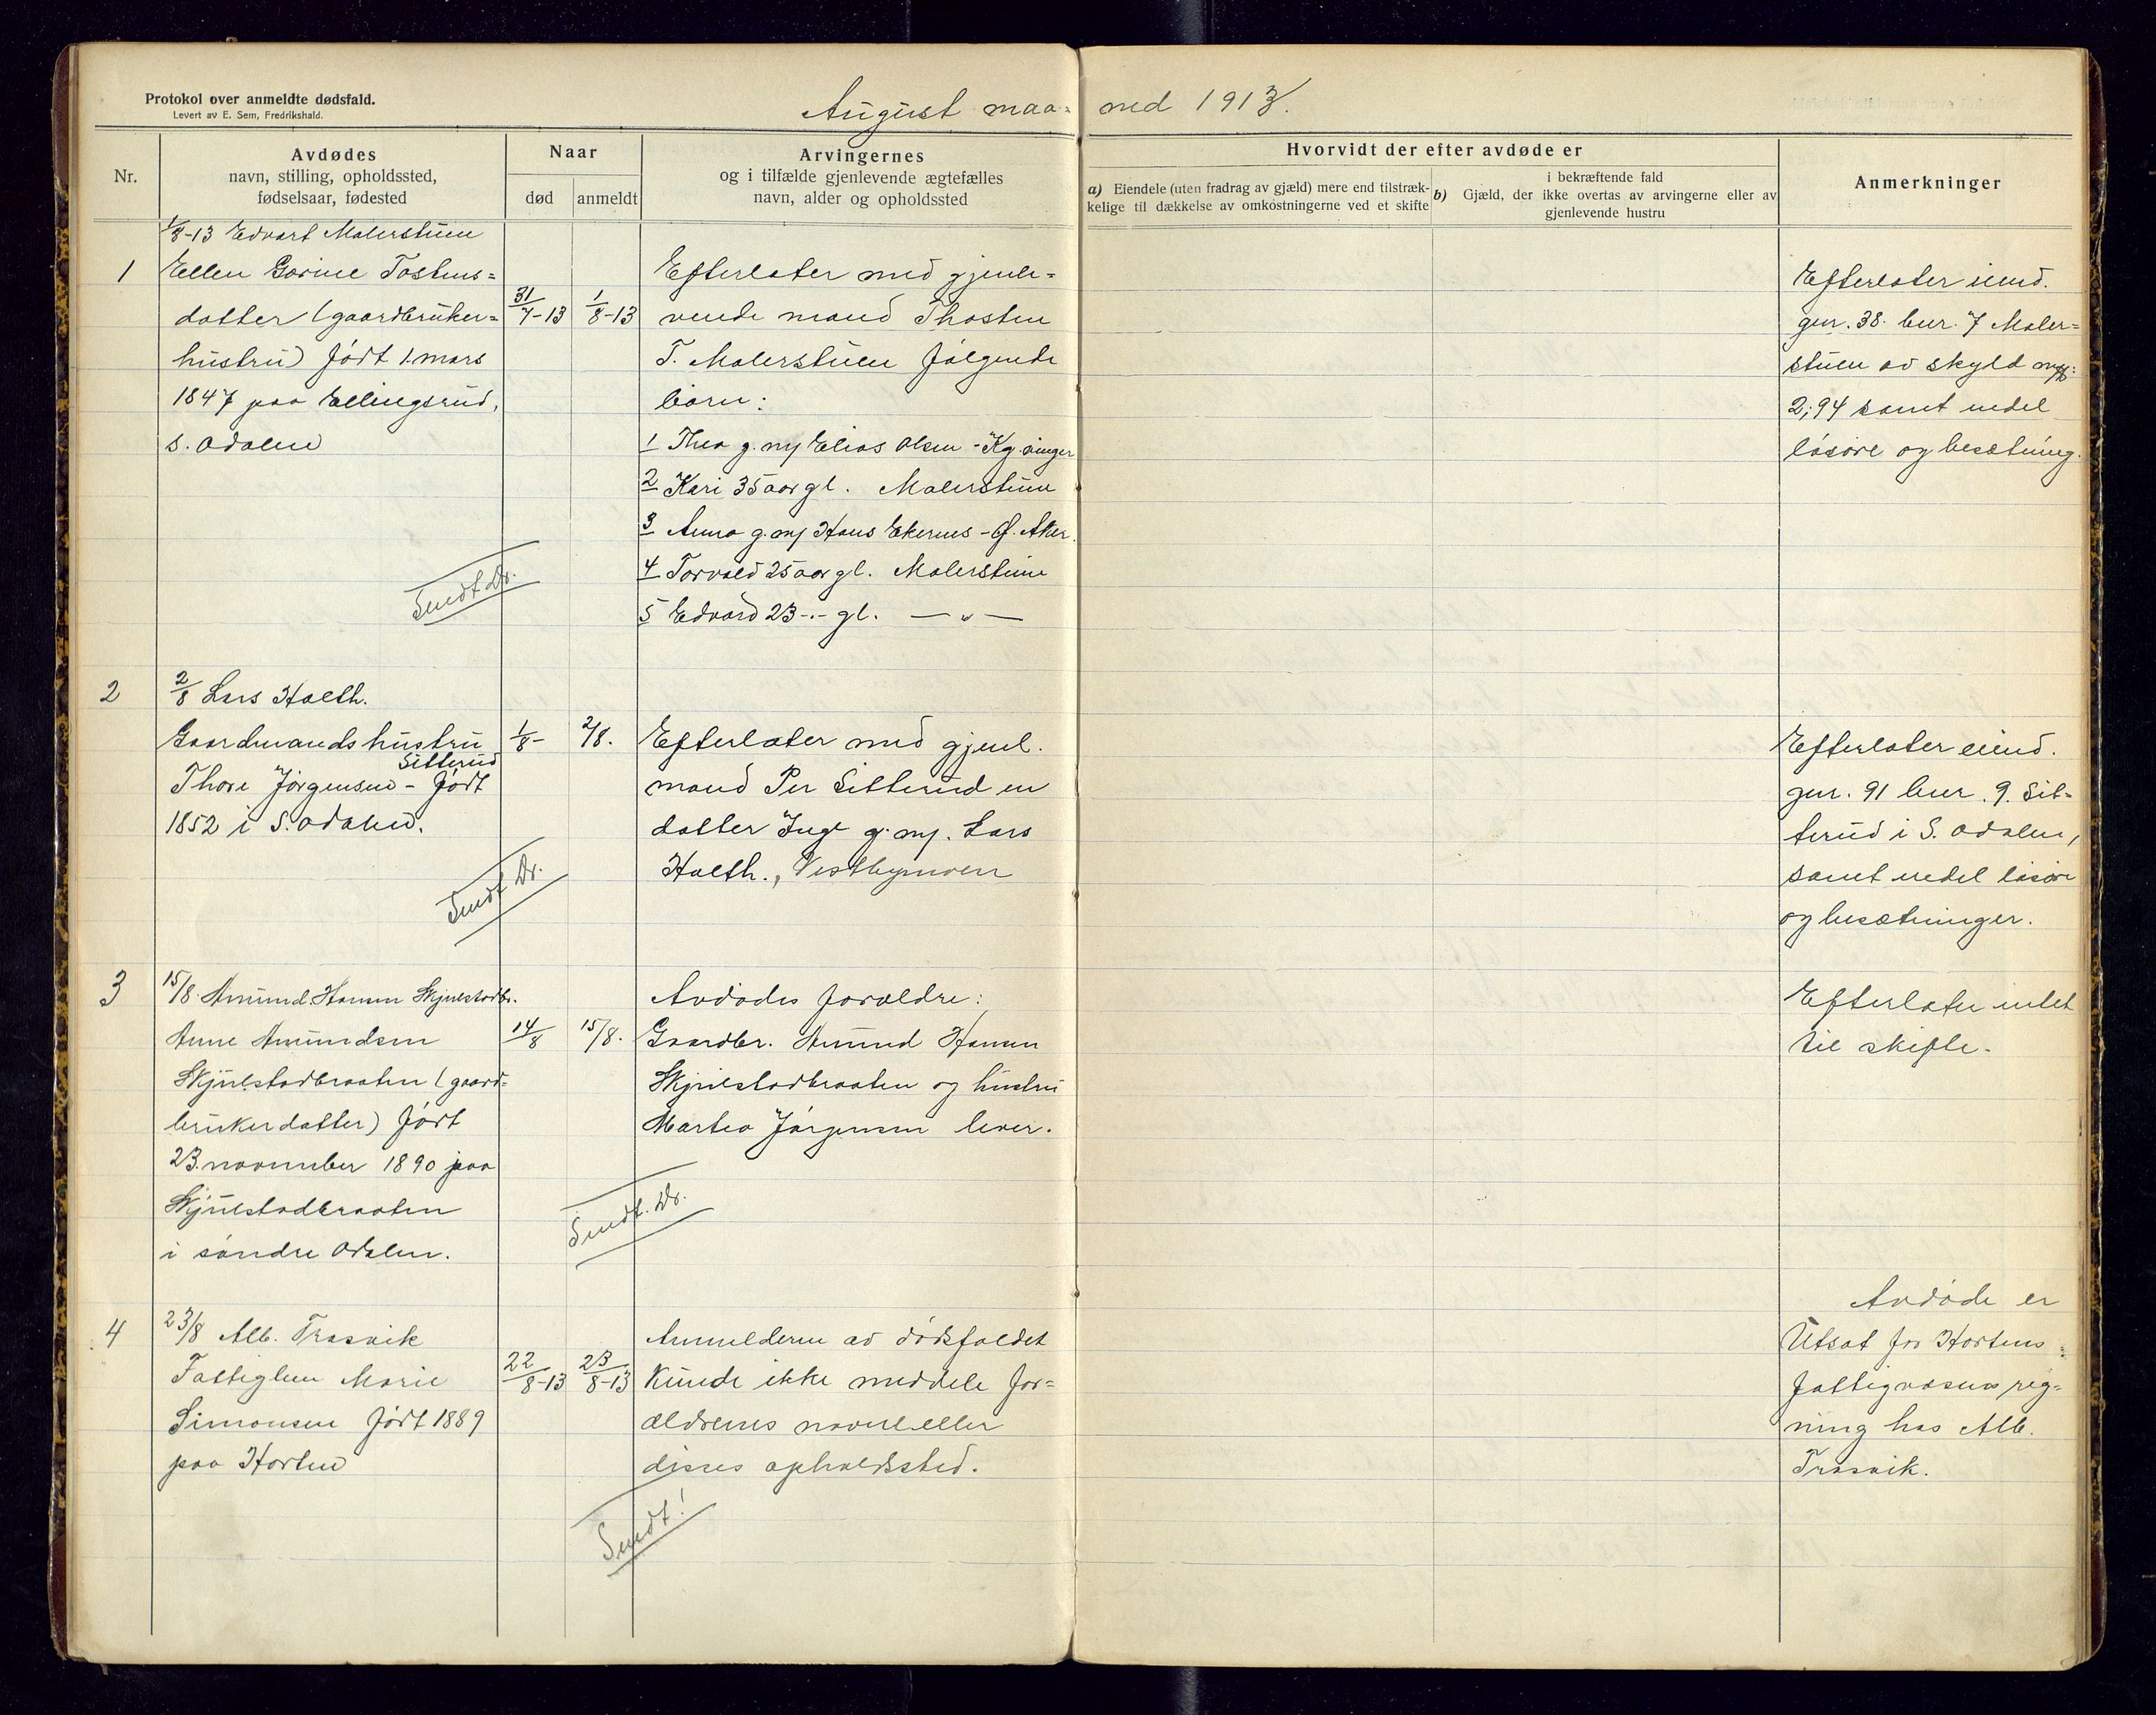 Protokol over anmeldte dødsfald.
Levert av E. Sem, Fredrikshald.
August maa= ned 1913.
Nr.
Avdødes
navn, stilling, opholdssted,
fødselsaar, fødested
Naar
død
anmeldt
Arvingernes
og i tilfælde gjenlevende ægtefælles
navn, alder og opholdssted
Hvorvidt der efter avdøde er
a) Eiendele (uten fradrag av gjæld) mere end tilstræk-
kelige til dækkelse av omkostningerne ved et skifte
i bekræftende fald
b) Gjæld, der ikke overtas av arvingerne eller av
gjenlevende hustru
Anmerkninger
1/8-13 Edvart Malerstuen
1
Ellen Gorine Tostens=
datter (gaardbruker=
hustru) født 1. mars
1847 paa Ellingsrud,
S. Odalen
31/7-13
1/8-13
Efterlater med gjenle=
vende mand Thosten
T. Malerstuen følgende
barn:
1 Thea g. m/ Elias Olsen - Kg.vinger
2 Kari 35 aar gl. Malerstuen
3 Anna g. m/ Hans Ekernes - Ø. Aker.
4 Torvald 25 aar gl. Malerstuen
5 Edvard 23 -.- gl. — " —
Efterlater eiend.
gnr. 38. bnr. 7 Maler=
stuen av skyld
2,94 samt endel
løsøre og besætning.
Sendt Dr.
2
2/8 Lars Holth.
Gaardmandshustru
Sitterud
Thore Jørgensen - født
1852 i S. Odalen.
1/8-
2/8.
Efterlater med gjenl.
mand Per Sitterud en
datter Inge g. m/. Lars
Holth., Vestbymoen
Efterlater eiend.
gnr. 91 bnr. 9. Sit-
terud i S. Odalen,
samt endel løsøre
og besætninger.
Sendt Dr.
3
15/8. Amund Hansen Skjulstadbr.
Anne Amundsen
Skjulstadbraaten (gaard=
brukerdatter) født
23. november 1890 paa
Skjulstadbraaten
i søndre Odalen.
14/8
15/8.
Avdødes forældre:
Gaardbr. Amund Hansen
Skjulstadbraaten og hustru
Martea Jørgensen lever.
Efterlater intet
til skifte.
Sendt. Dr.
4
23/8 Alb. Trasvik
Fattiglem Marie
Simonsen født 1889
paa Horten
22/8-13
23/8-13
Anmelderen av dødsfaldet
kunde ikke meddele for=
ældrenes navne eller
disses opholdssted.
Avdøde er
utsat for Hortens
fattigvæsens reg=
ning hos Alb.
Trasvik.
Sendt!